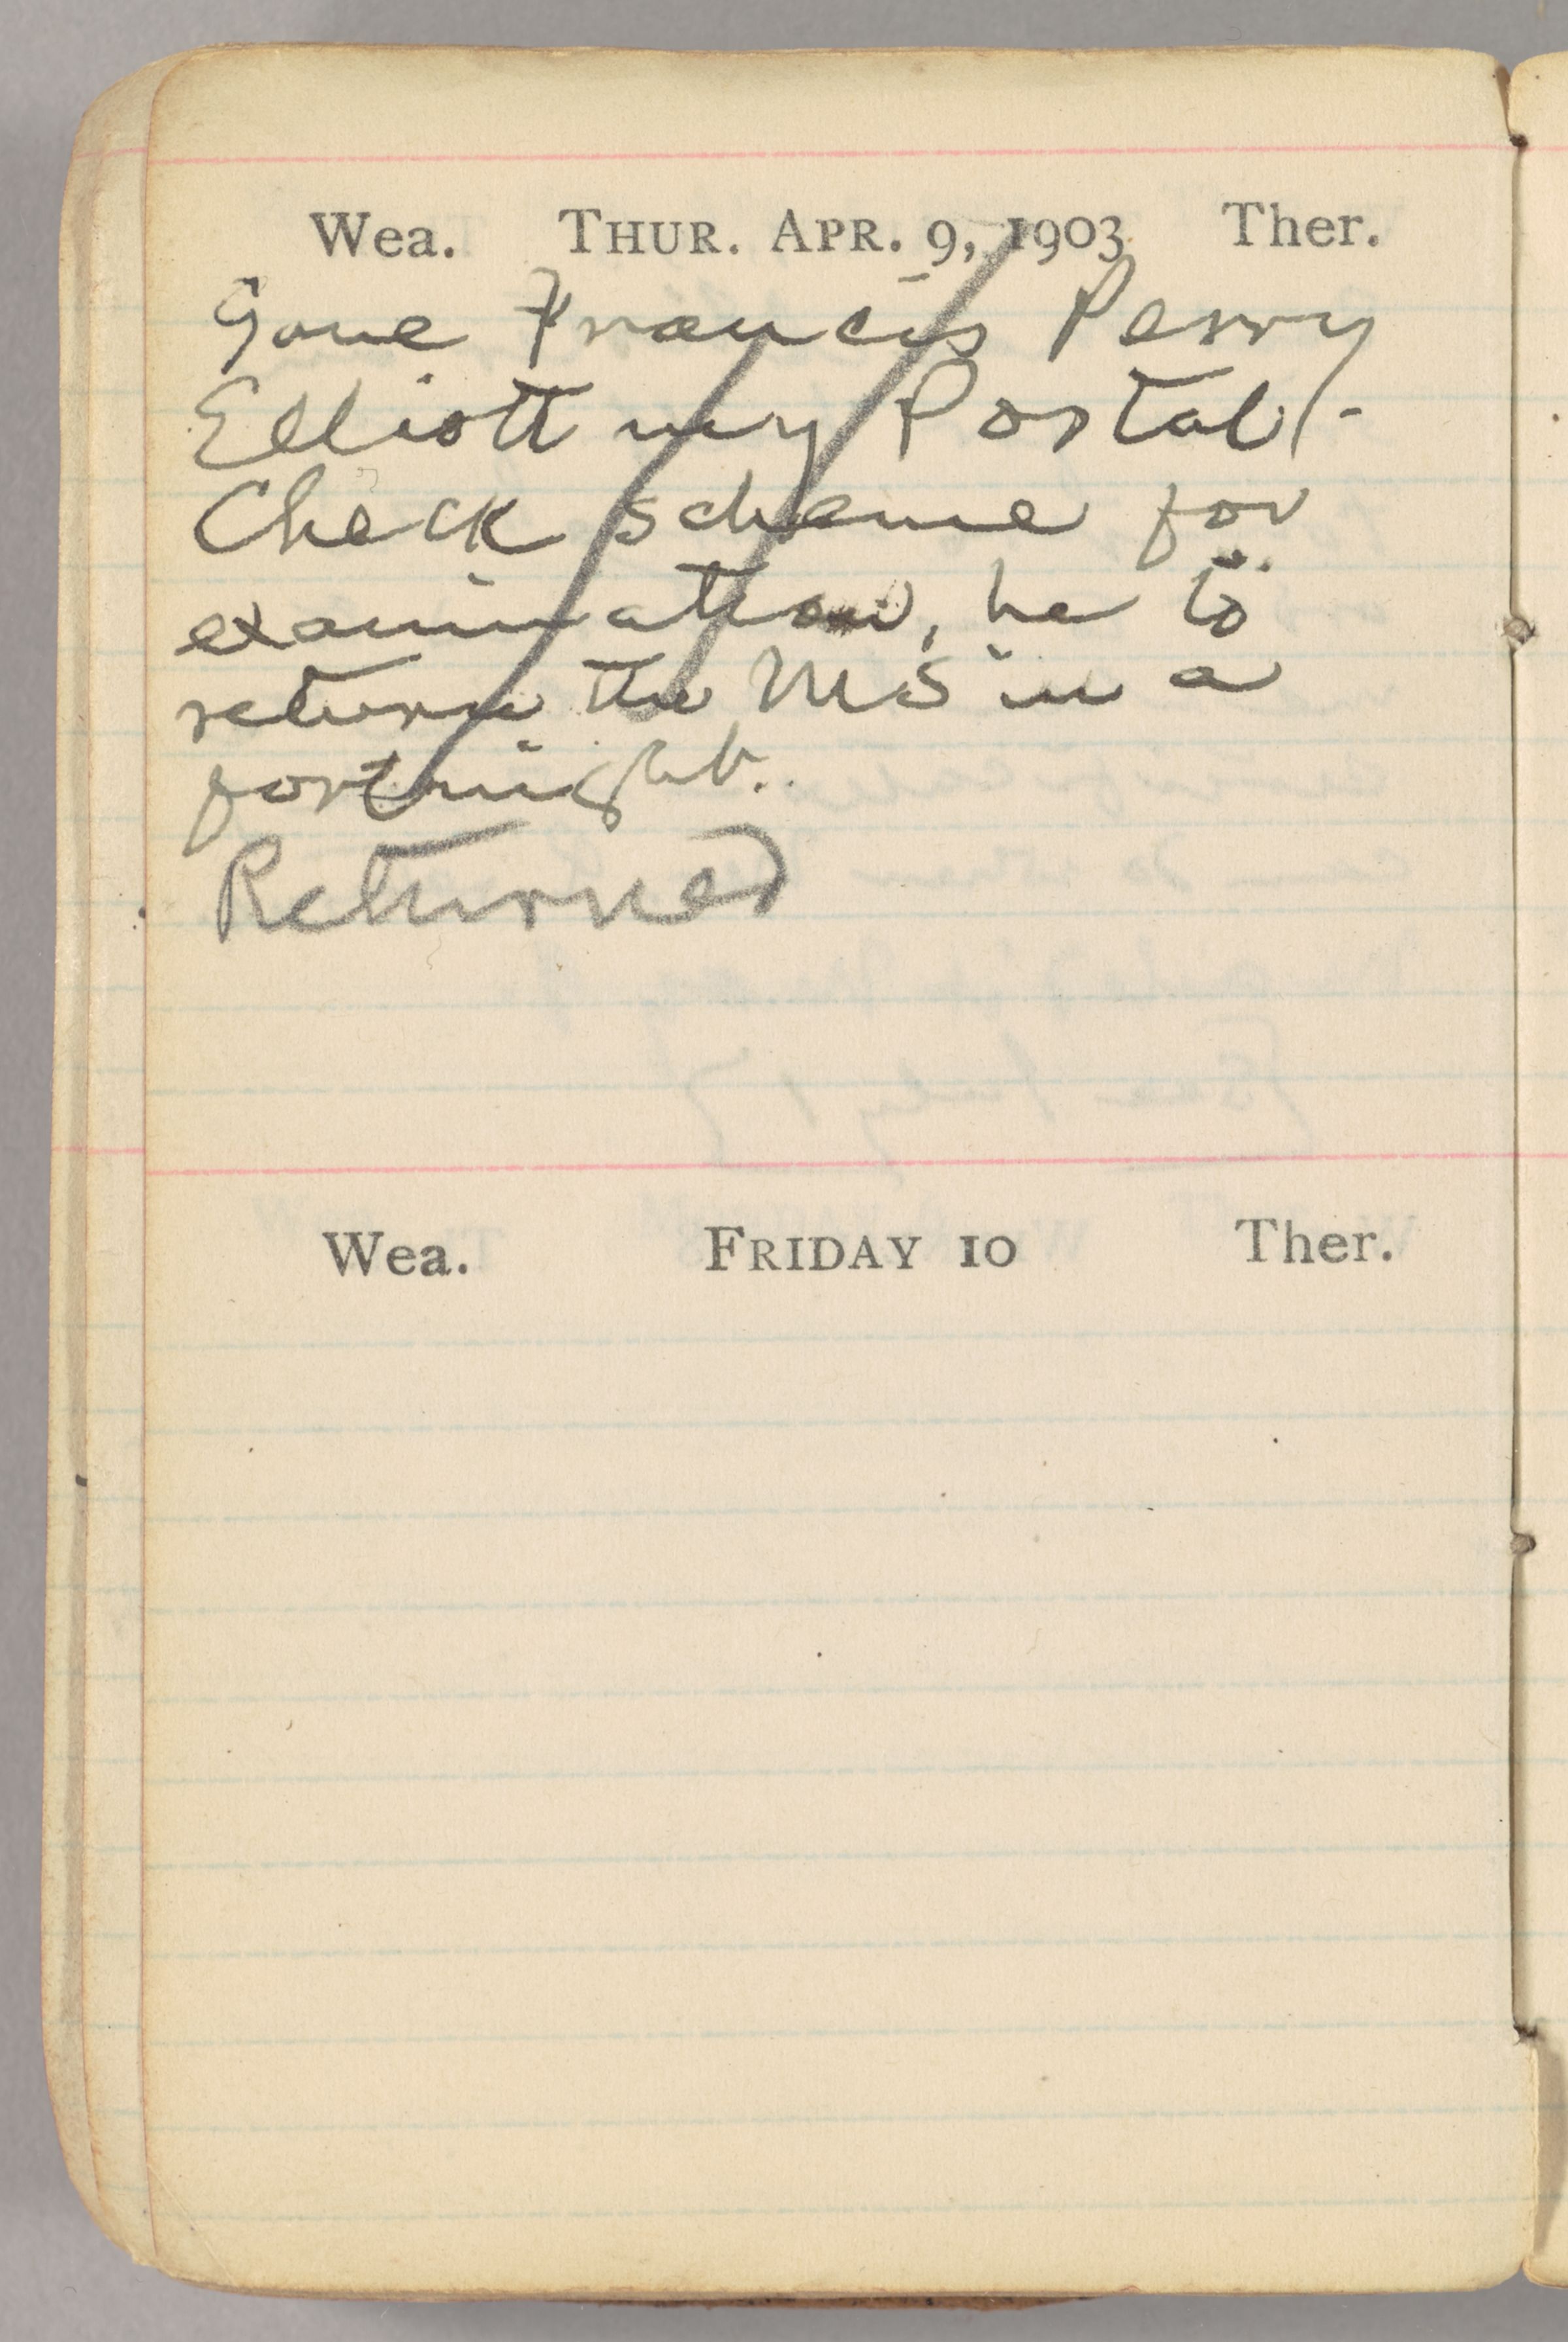 Wea. THUR. APR. 9, 1903 Ther.
Gave Francis Perry
Elliott my Postal-
Check scheme for
examination, he to
return the MS in a
fortnight.
Returned
Wea. FRIDAY 10 Ther.